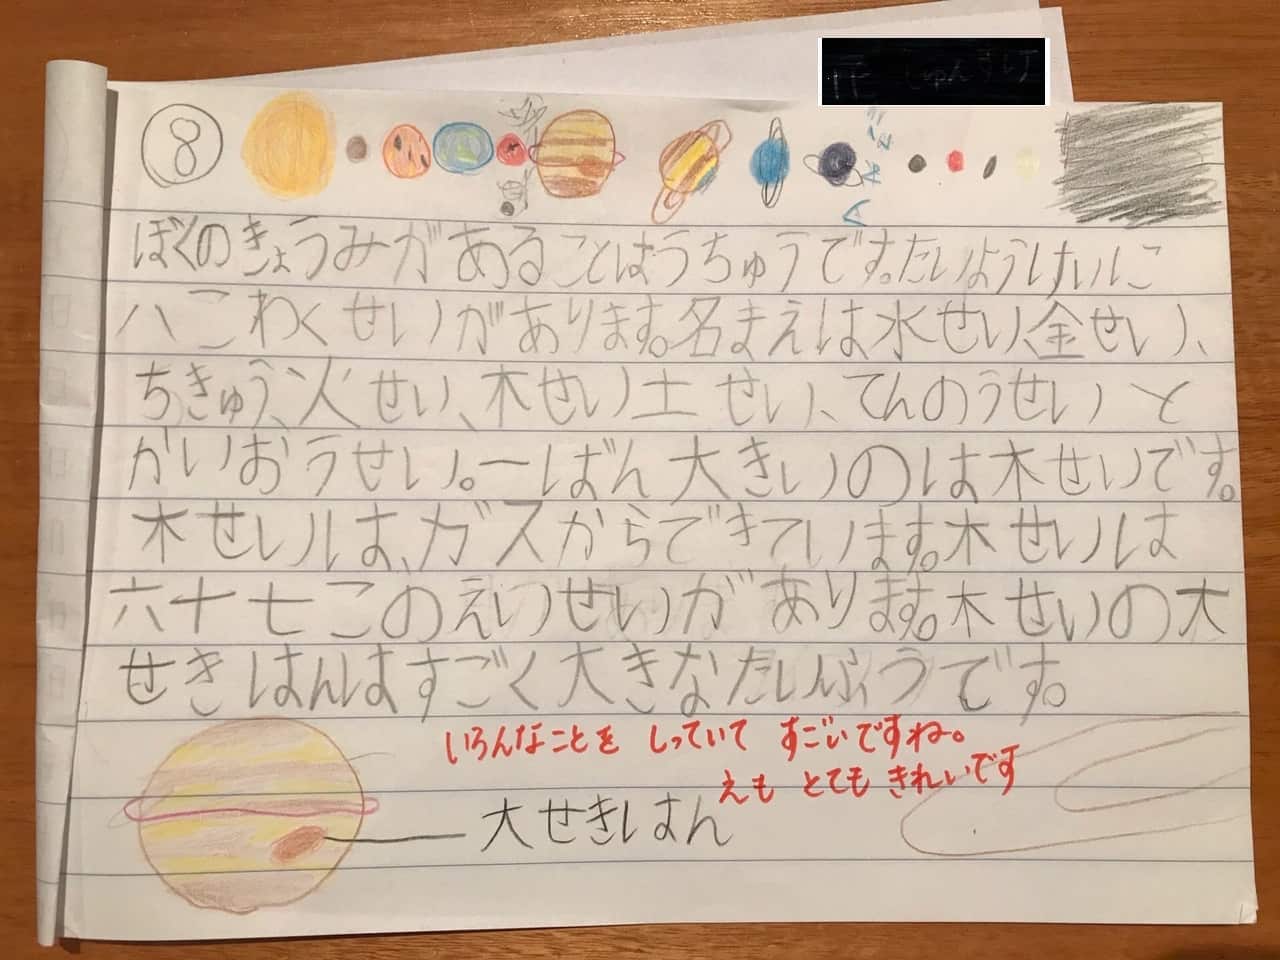 ⑧
ぼくのきょうみがあることはうちゅうです。たいようけいに
八こわくせいがあります。名まえは水せい、金せい、
ちきゅう、火せい、木せい土せい、てんのうせいと
かいおうせい。一ばん大きいのは木せいです。
木せいは、ガスからできています。木せいは
六十七このえいせいがあります。木せいの大
せきはんはすごく大きなたいふうです。
いろんなことを しっていて すごいですね。
えも とても きれいです
大せきはん